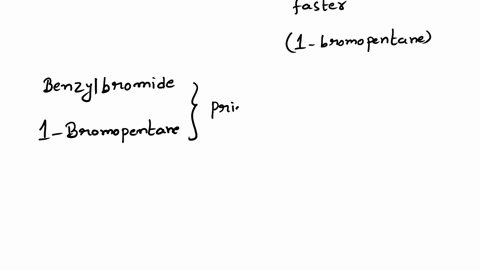 faster
(1-bromopentane)
Benzylbromide
1-Bromopentane
pri